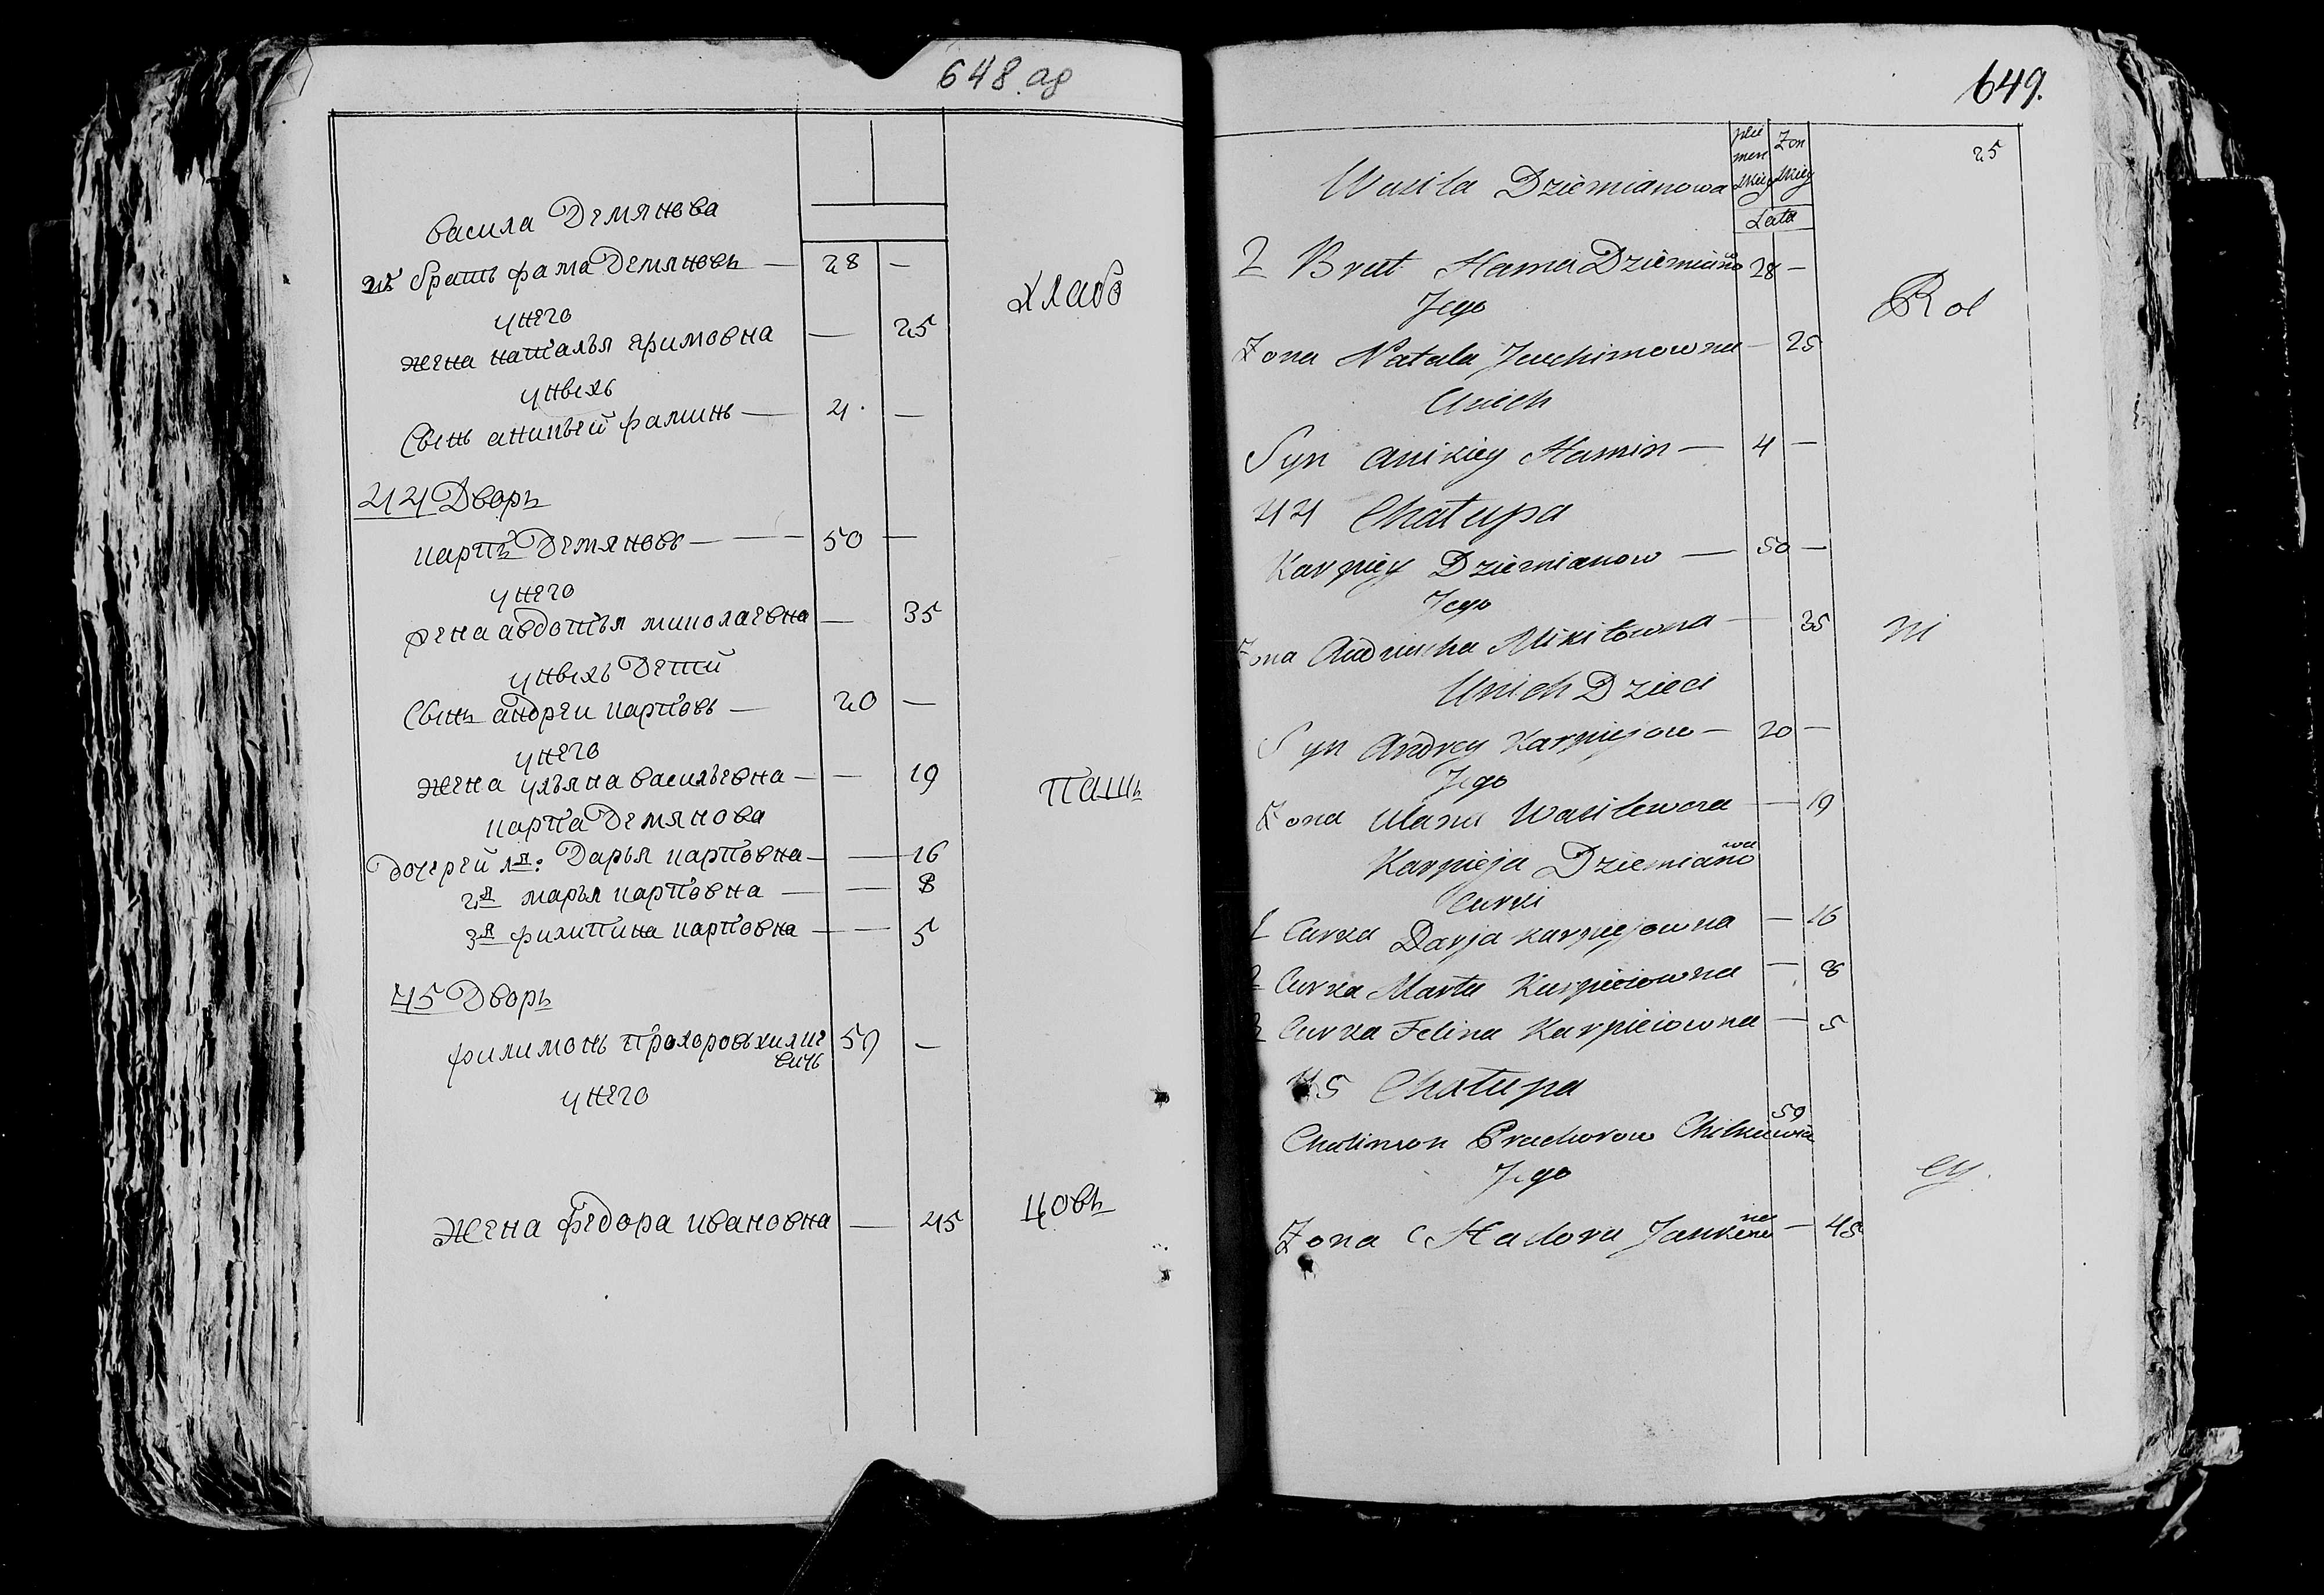 648 об
Васила Демянова
2й братъ фама Демяновъ — 28 —
унего
жена наталья ефимовна — 25
унвхъ
Свинъ анипъей фаминъ — 4 —
хлебо
44 Дворъ
карпъ Демяновъ — 50 —
унего
жена авдотья миколаевна — 35
унвхъ Дети
Свинъ андреи карповъ — 20 —
унего
жена ульяна васильевна — — 19
пашъ
карпа Демянова
дочерей 1я: Дарья карповна — — 16
2я марья карповна — — 8
3я филипина карповна — — 5
45 Дворъ
филимонъ прохоровъ хилкевичъ 59 —
унего
жена федора ивановна — 45
цовъ
649.
plci men skiey
Zon skiey
25
Wasila Dziemianowa
Lata
2 Brat Hama Dziemiano 28 —
Jego
Rol
Zona Natala Jauchimowna — 25
Unich
Syn Anikiey Hamin — 4 —
44 Chatupa
Karpiey Dziemianow — 50 —
Jego
Zona Mikitowna — 35
ni
Unich Dzieci
Syn Andrey Karpiejow — 20 —
Jego
Zona Ulana Wasilewna — 19
Karpieja Dziemianowa
Curki
1 Curka Darja Karpiejowna — 16
2 Curka Marta Karpieiowna — 8
3 Curka Felina Karpieiowna — 5
45 Chatupa
Chalimon Prachorow 59
Jego
cy.
Zona Hadora — 45